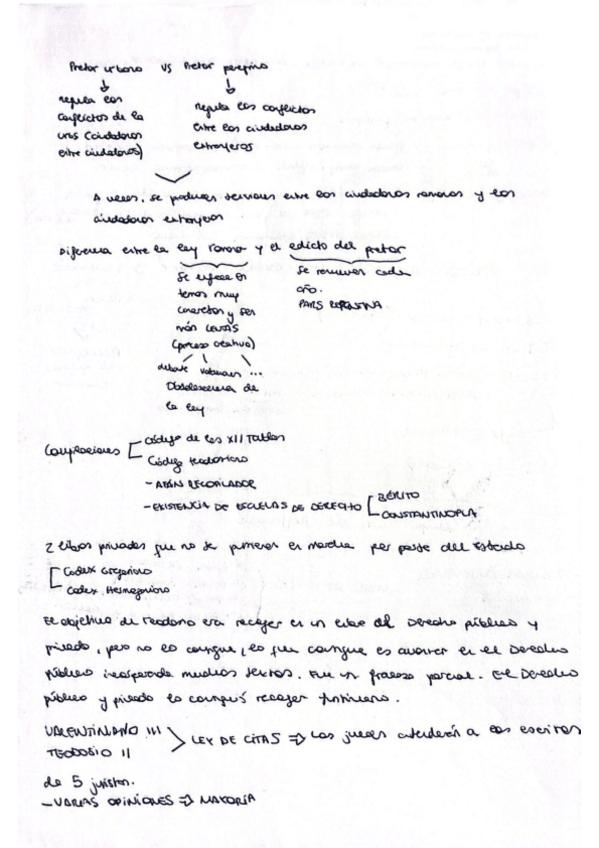 Pretor urbano VS Pretor peregrino
regula los
conflictos de la
urbs (ciudadanos
entre ciudadanos)
regula los conflictos
entre los ciudadanos
extranjeros
A veces, se producen tensiones entre los ciudadanos romanos y los
ciudadanos extranjeros
Diferencia entre la ley romana y el edicto del pretor
Se enfoca en
temas muy
concretos y son
más lentas
(proceso
debate votaciones ...
Obsolescencia de
la ley
Se renueva cada
año.
PARS REPENTINA.
Compilaciones
Código de las XII Tablas
Código teodosiano
- AFÁN RECOPILADOR
- EXISTENCIA DE ESCUELAS DE DERECHO
BÉRITO
CONSTANTINOPLA
2 libros privados que no se pusieron en marcha por parte del Estado
Codex Gregoriano
Codex Hermogeniano
El objetivo de Teodosio era recoger en un libro el Derecho público y
privado, pero no lo consigue, lo que consigue es avanzar en el Derecho
público incorporando muchos textos. Fue un fracaso parcial. El Derecho
público y privado lo consiguió recoger Justiniano.
VALENTINIANO III
TEODOSIO II
LEY DE CITAS ⇒ Los jueces atenderán a los escritos
de 5 juristas.
- VARIAS OPINIONES ⇒ MAYORÍA